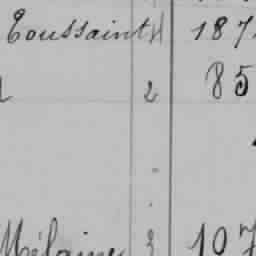 Toussaint 187
2 85
Mélanie 3 107